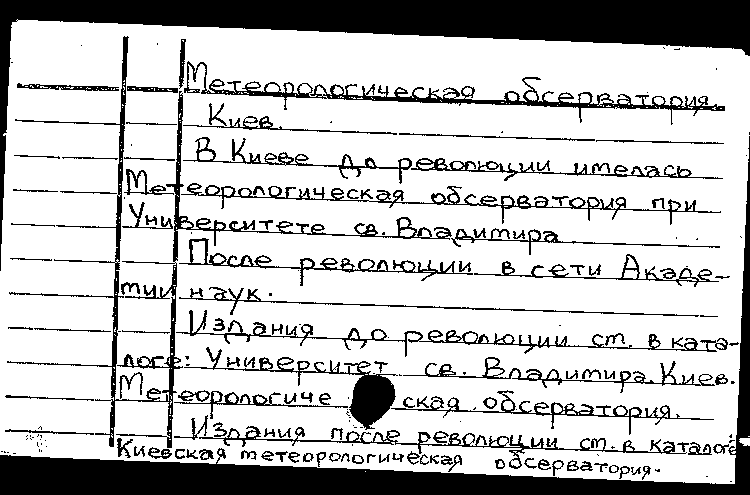 Метеорологическая обсерватория.
Киев.
В Киеве до революции имелась
Метеорологическая обсерватория при
Университете св. Владимира
После революции в сети Акаде-
мии наук.
Издания до революции см. в ката-
логе: Университет св. Владимира. Киев.
Метеорологиче ская обсерватория.
Издания после революции см. в каталоге:
Киевская метеорологическая обсерватория.